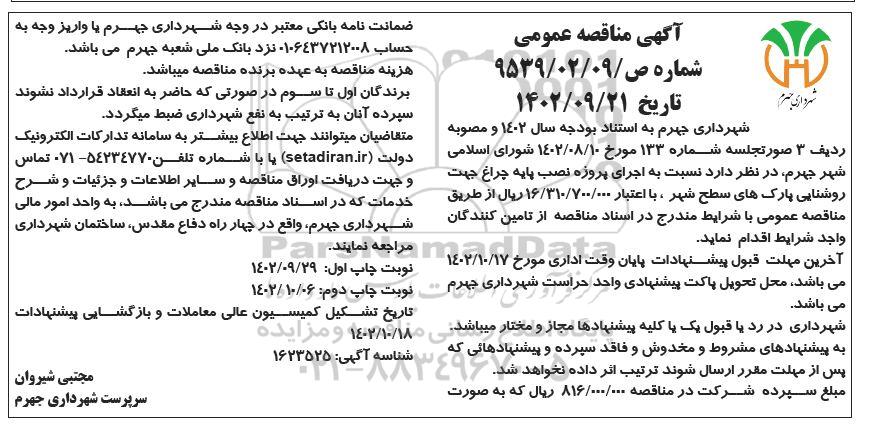 آگهی مناقصه عمومی
شماره ص/۹۵۳۹/۰۲/۰۹
تاریخ ۱۴۰۲/۰۹/۲۱
شهرداری جهرم
شهرداری جهرم به استناد بودجه سال ۱۴۰۲ و مصوبه
ردیف ۳ صورتجلسه شماره ۱۳۳ مورخ ۱۴۰۲/۰۸/۱۰ شورای اسلامی
شهر جهرم، در نظر دارد نسبت به اجرای پروژه نصب پایه چراغ جهت
روشنایی پارک های سطح شهر ، با اعتبار ۱۶/۳۱۰/۷۰۰/۰۰۰ ریال از طریق
مناقصه عمومی با شرایط مندرج در اسناد مناقصه از تامین کنندگان
واجد شرایط اقدام نماید.
آخرین مهلت قبول پیشنهادات پایان وقت اداری مورخ ۱۴۰۲/۱۰/۱۷
می باشد، محل تحویل پاکت پیشنهادی واحد حراست شهرداری جهرم
می باشد.
شهرداری در رد یا قبول یک یا کلیه پیشنهادها مجاز و مختار میباشد.
به پیشنهادهای مشروط و مخدوش و فاقد سپرده و پیشنهادهائی که
پس از مهلت مقرر ارسال شوند ترتیب اثر داده نخواهد شد.
مبلغ سپرده شرکت در مناقصه ۸۱۶/۰۰۰/۰۰۰ ریال که به صورت
ضمانت نامه بانکی معتبر در وجه شهرداری جهرم یا واریز وجه به
حساب ۰۱۰۶۴۳۷۲۱۲۰۰۸ نزد بانک ملی شعبه جهرم می باشد.
هزینه مناقصه به عهده برنده مناقصه میباشد.
برندگان اول تا سوم در صورتی که حاضر به انعقاد قرارداد نشوند
سپرده آنان به ترتیب به نفع شهرداری ضبط میگردد.
متقاضیان میتوانند جهت اطلاع بیشتر به سامانه تدارکات الکترونیک
دولت (setadiran.ir) یا با شماره تلفن ۵۴۲۳۴۷۷۰-۰۷۱ تماس
و جهت دریافت اوراق مناقصه و سایر اطلاعات و جزئیات و شرح
خدمات که در اسناد مناقصه مندرج می باشد، به واحد امور مالی
شهرداری جهرم، واقع در چهار راه دفاع مقدس، ساختمان شهرداری
مراجعه نمایند.
نوبت چاپ اول: ۱۴۰۲/۰۹/۲۹
نوبت چاپ دوم: ۱۴۰۲/۱۰/۰۶
تاریخ تشکیل کمیسیون عالی معاملات و بازگشایی پیشنهادات
۱۴۰۲/۱۰/۱۸
شناسه آگهی: ۱۶۲۳۵۲۵
مجتبی شیروان
سرپرست شهرداری جهرم
ParsNamadData
پایگاه اطلاع رسانی مناقصه و مزایده
۰۲۱-۸۸۳۴۹۶۷۰-۵